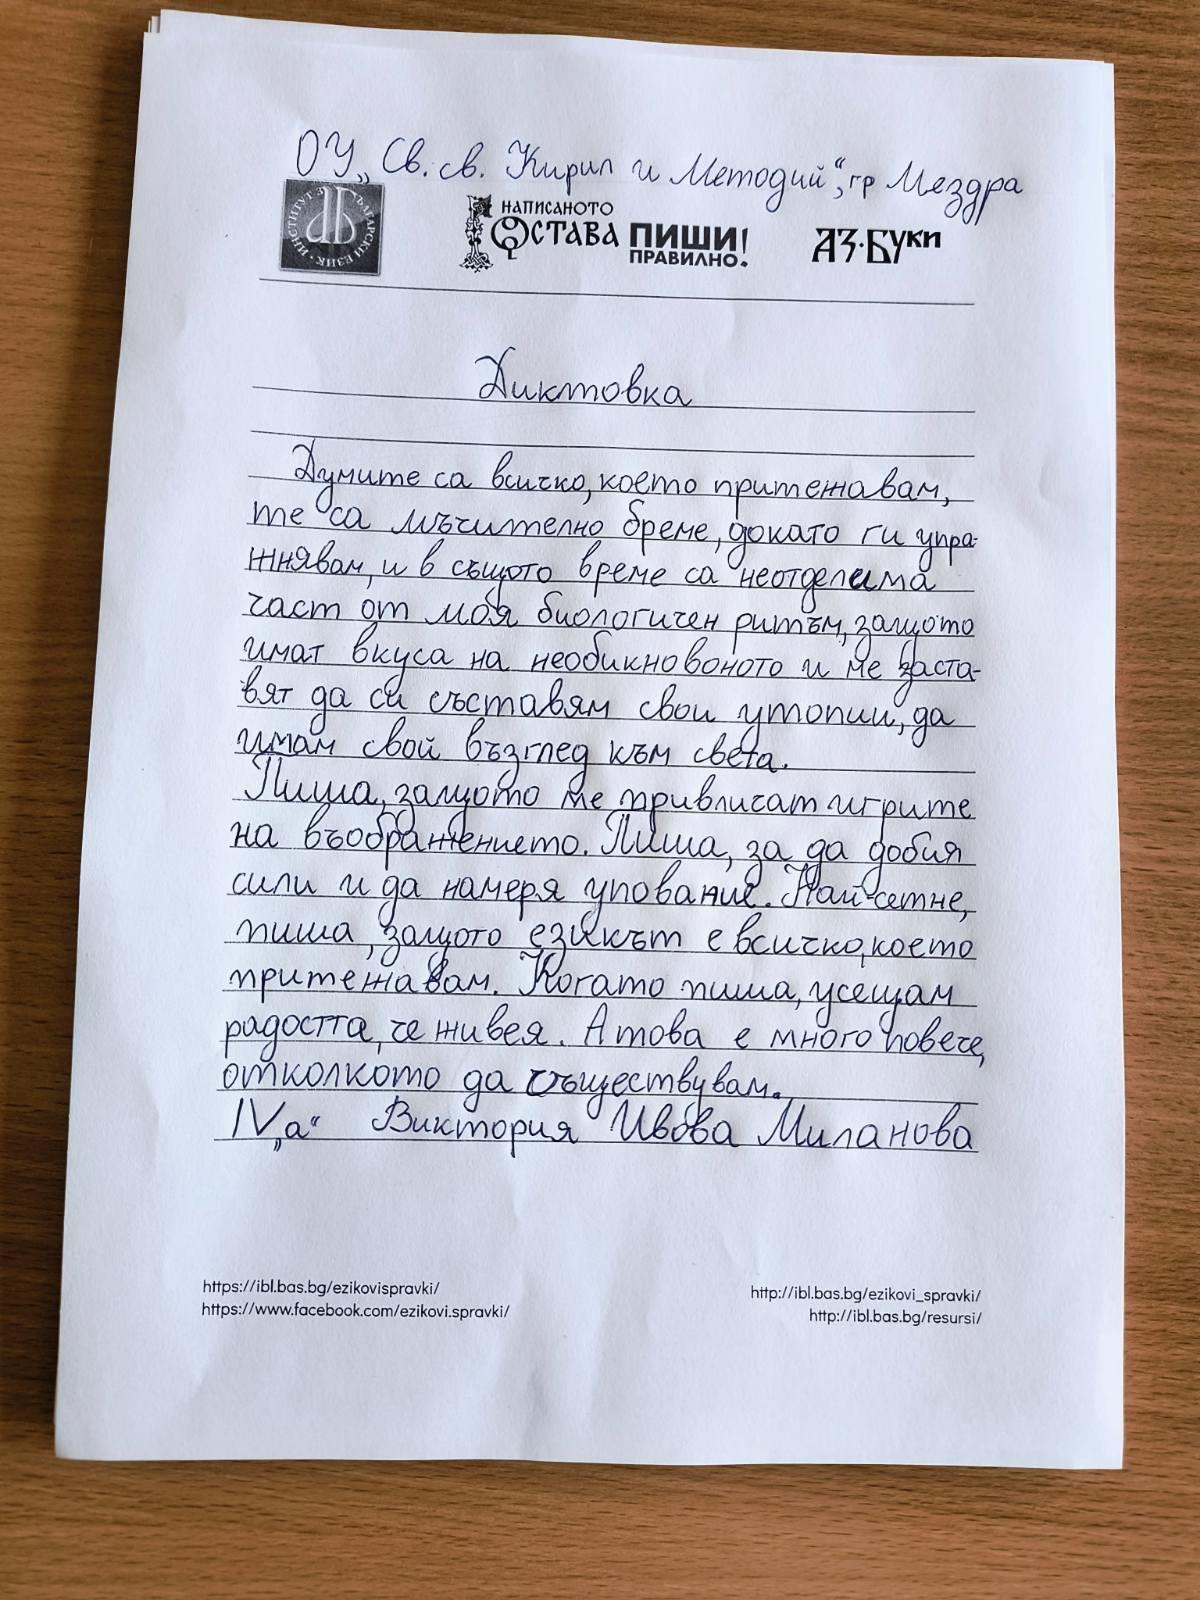 ОУ „Св. св. Кирил и Методий“, гр Мездра
ИНСТИТУТ ЗА БЪЛГАРСКИ ЕЗИК
НАПИСАНОТО
ОСТАВА ПИШИ
ПРАВИЛНО!
АЗ·БУКИ
Диктовка
Думите са всичко, което притежавам,
те са мъчително бреме, докато ги упра-
жнявам, и в същото време са неотделима
част от моя биологичен ритъм, защото
имат вкуса на необикновоното и ме заста-
вят да си съставям свои утопии, да
имам свой възглед към света.
Пиша, защото ме привличат игрите
на въображението. Пиша, за да добия
сили и да намеря упование. Най-сетне,
пиша, защото езикът е всичко, което
притежавам. Когато пиша, усещам
радостта, че живея. А това е много повече,
отколкото да съществувам.
IV „а“ Виктория Ивова Миланова
https://ibl.bas.bg/ezikovispravki/
https://www.facebook.com/ezikovi.spravki/
http://ibl.bas.bg/ezikovi_spravki/
http://ibl.bas.bg/resursi/